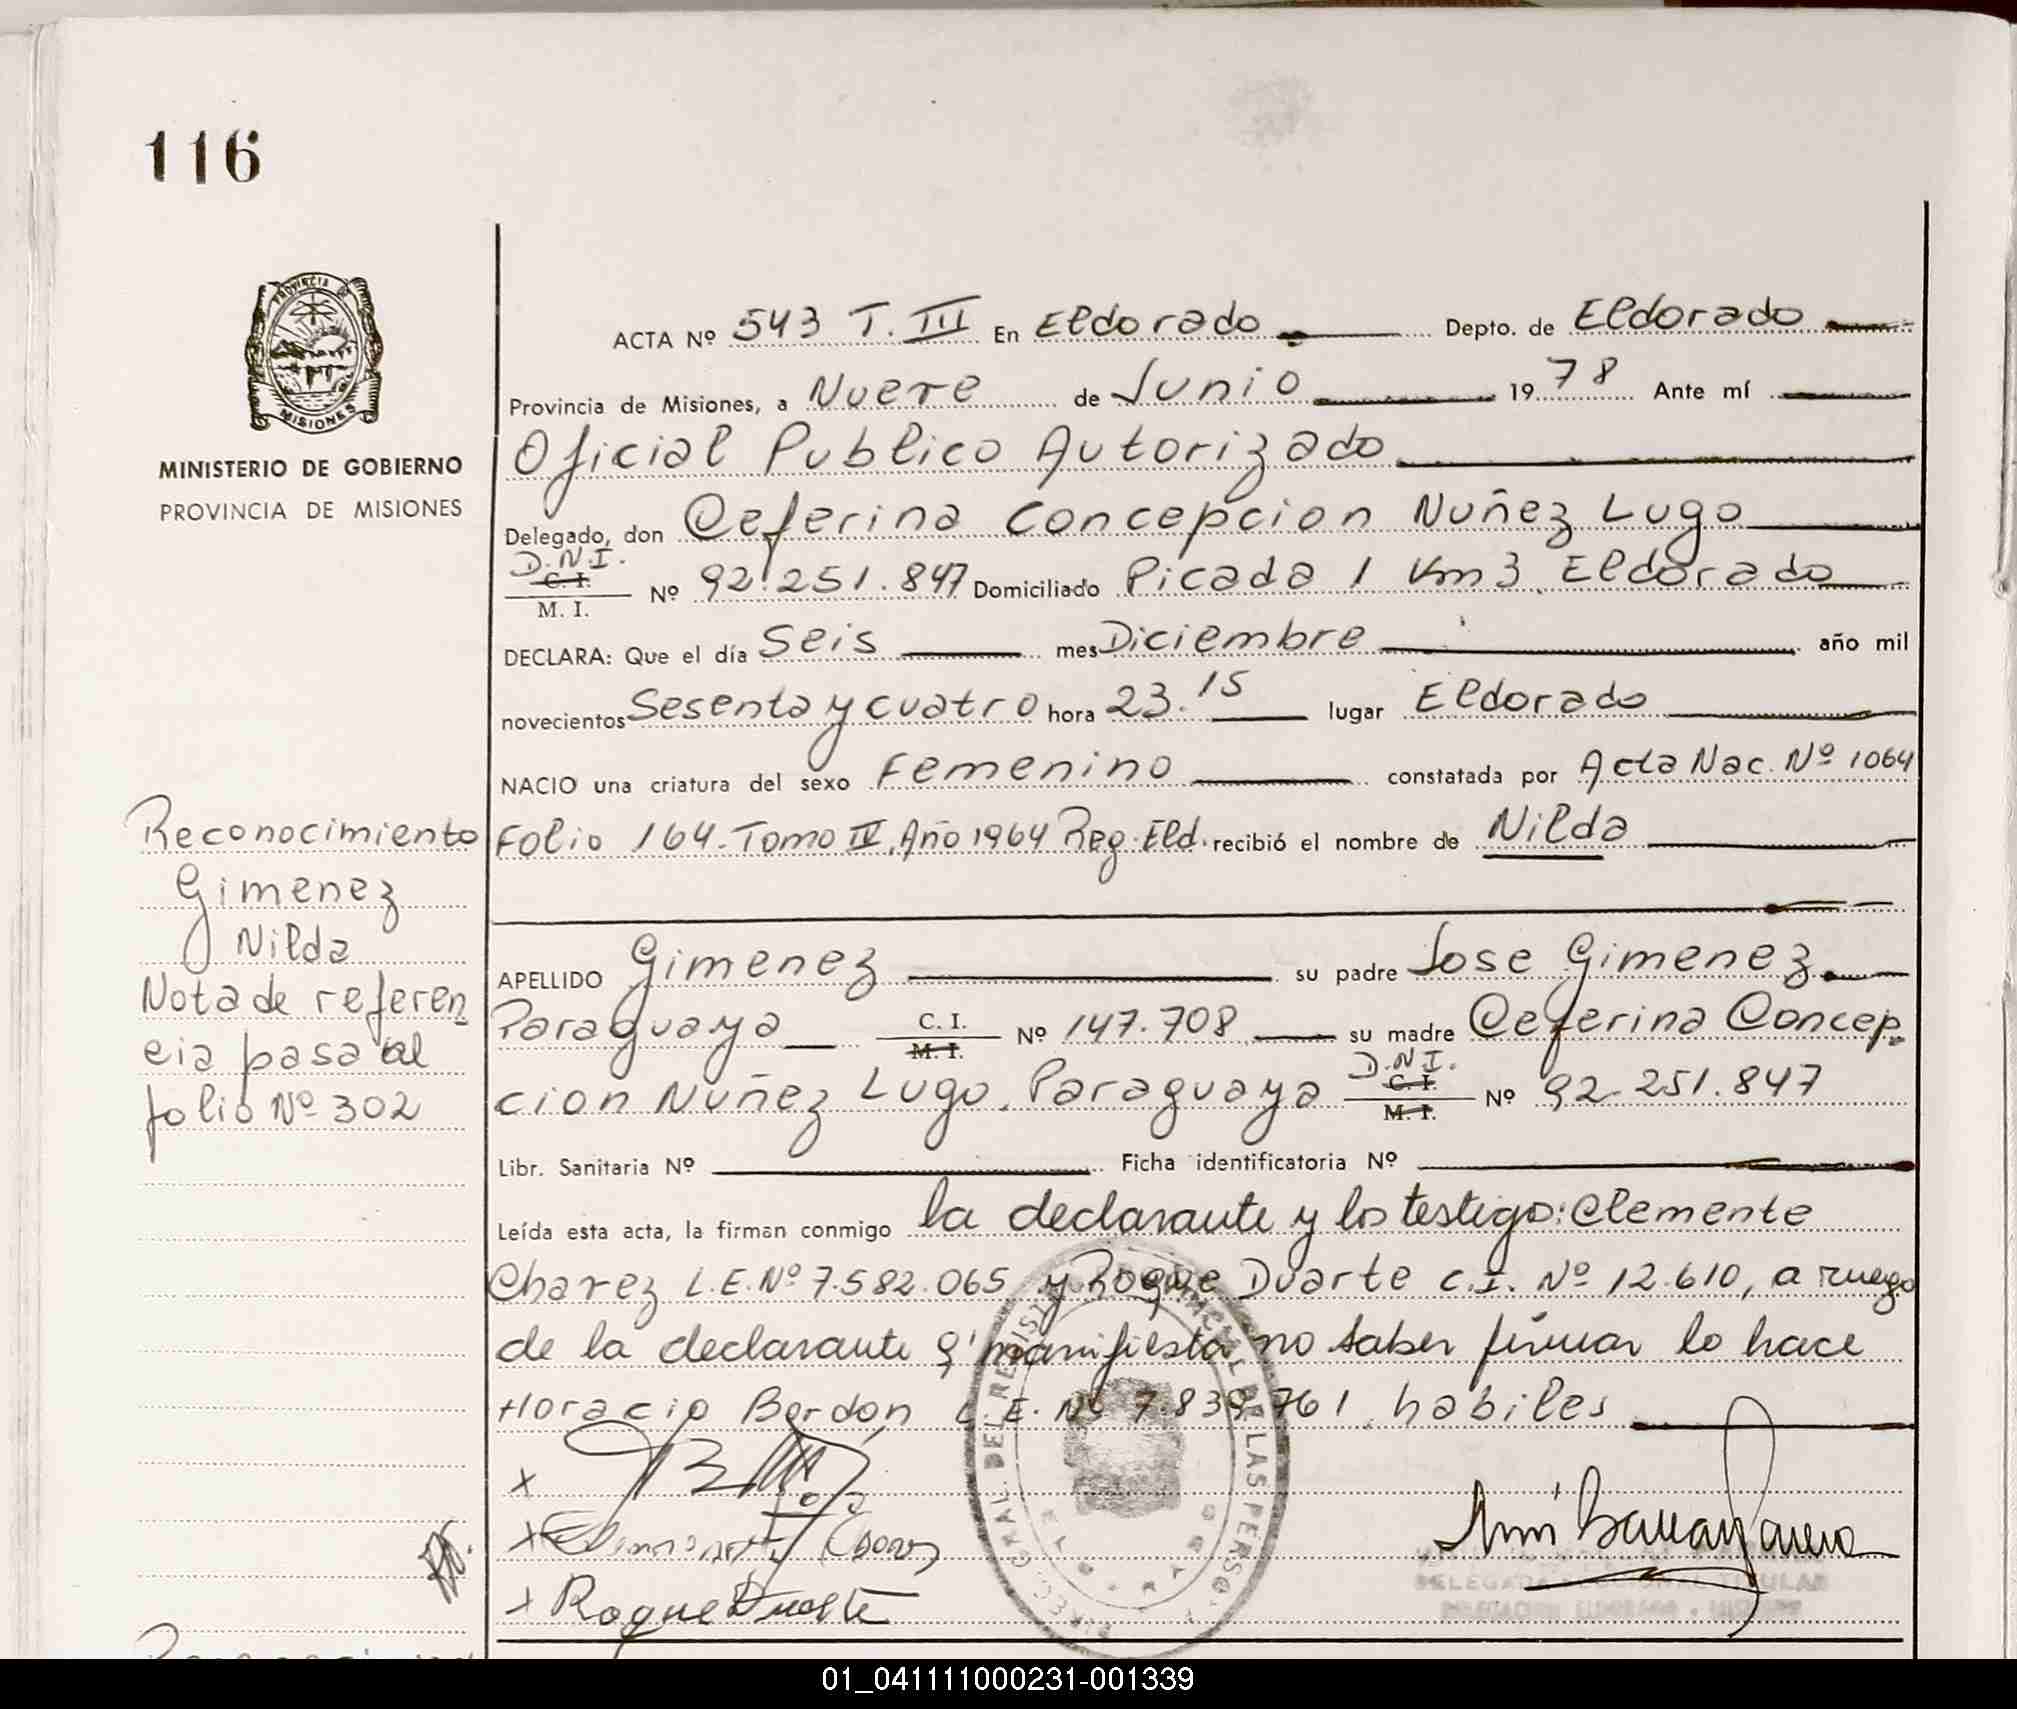 116
PROVINCIA DE
MISIONES
MINISTERIO DE GOBIERNO
PROVINCIA DE MISIONES
ACTA Nº 543 T. III En Eldorado Depto. de Eldorado
Provincia de Misiones, a Nueve de Junio 1978 Ante mí
Oficial Publico Autorizado
Delegado, don Ceferina Concepcion Nuñez Lugo
D.N.I.
C. I.
M. I. Nº 92.251.847 Domiciliado Picada 1 Km 3 Eldorado
DECLARA: Que el día Seis mes Diciembre año mil
novecientos Sesenta y cuatro hora 23.15 lugar Eldorado
NACIO una criatura del sexo Femenino constatada por Acta Nac. Nº 1064
Folio 164. Tomo IV. Año 1964 Reg. Eld. recibió el nombre de Nilda
APELLIDO Gimenez su padre Jose Gimenez
Paraguaya C. I. M. I. Nº 147.708 su madre Ceferina Concep
cion Nuñez Lugo. Paraguaya D.N.I. C. I. M. I. Nº 92.251.847
Libr. Sanitaria Nº Ficha identificatoria Nº
Leída esta acta, la firman conmigo la declarante y los testigo: Clemente
Chavez L.E. Nº 7.582.065 y Roque Duarte C.I. Nº 12.610, a ruego
de la declarante q' manifiesta no saber firmar lo hace
Horacio Bordón L.E. Nº 7.839.761 habiles
x
x Chavez
x Roque Duarte
Reconocimiento
Gimenez
Nilda
Nota de referen
cia pasa al
folio Nº 302
DIREC. GRAL. DEL REGISTRO PROVINCIAL DE LAS PERSONAS
DELEGADA SECCIONAL TITULAR
01_041111000231-001339